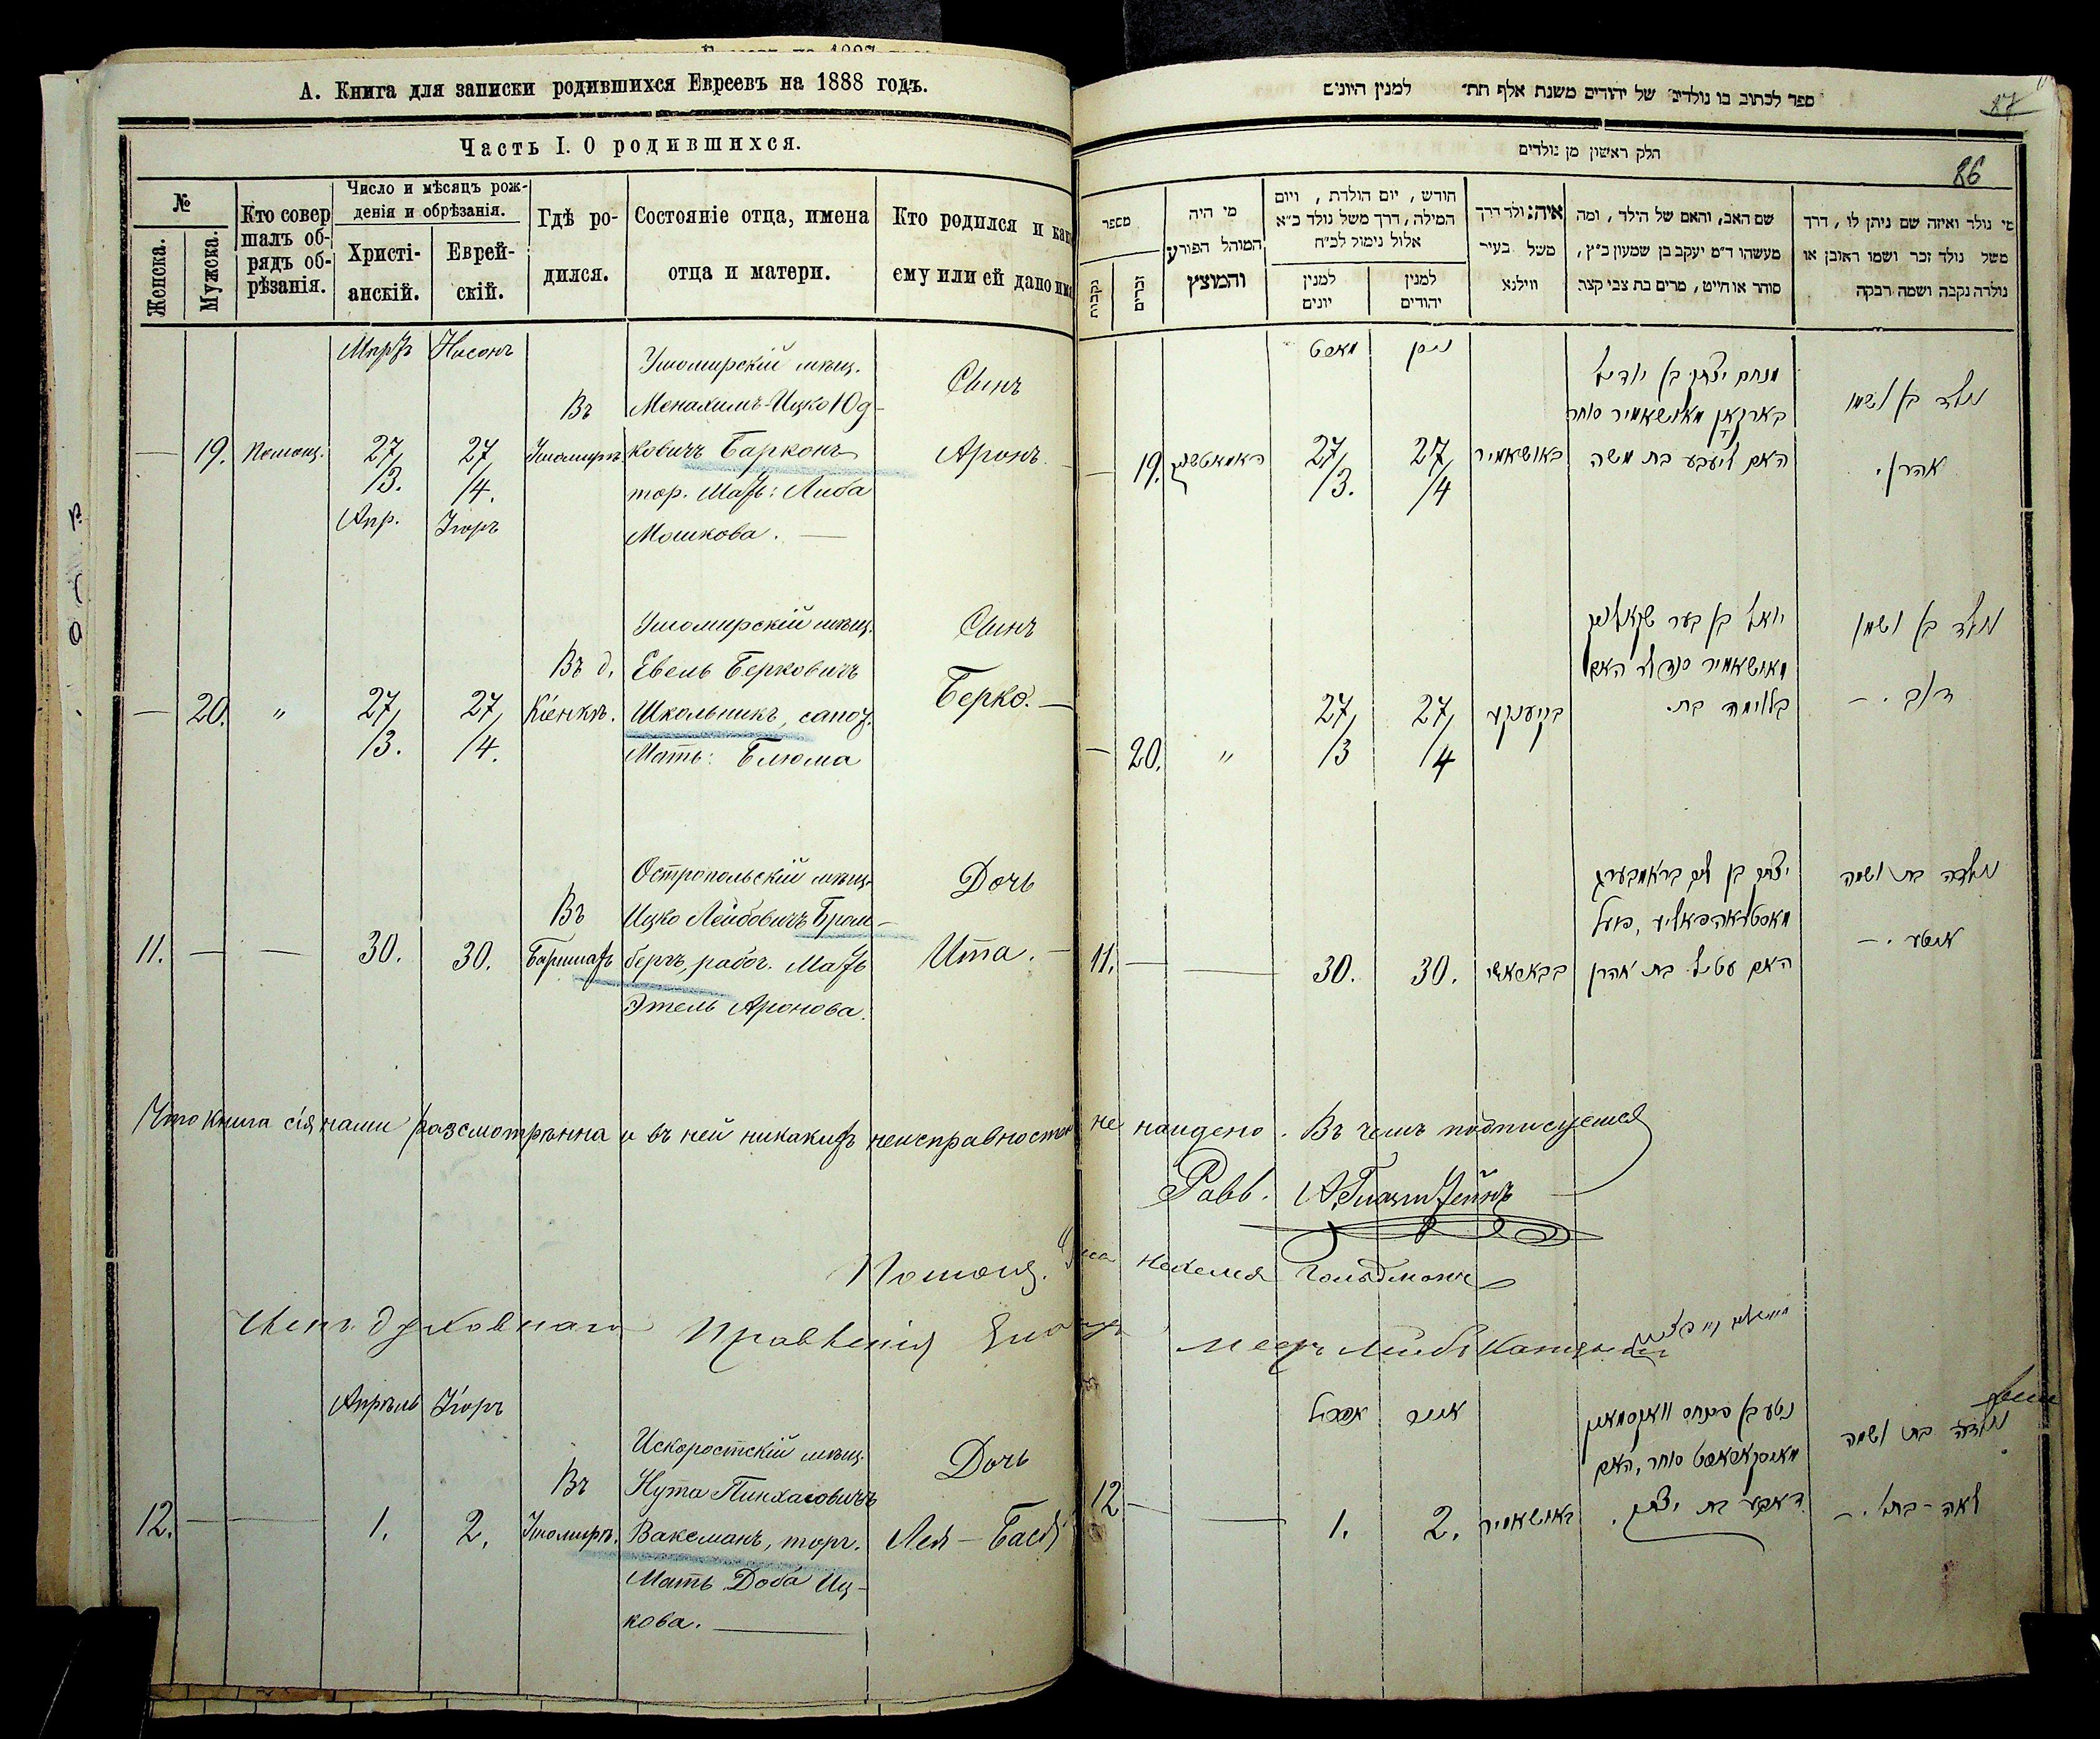 А. Книга для записки родившихся Евреевъ на 1888 годъ.
Часть I. О родившихся.
№
Женска.
Мужска.
Кто совер
шалъ об-
рядъ об-
рѣзанія.
Число и мѣсяцъ рож-
денія и обрѣзанія.
Христі-
анскій.
Еврей-
скій.
Гдѣ ро-
дился.
Состояніе отца, имена
отца и матери.
Кто родился и как
ему или ей дано има
Мартъ Нисонъ
— 19. Помощ. 27/3. 27/4.
Апр. Іюръ
Въ
Ушомирѣ.
Ушомирскій мѣщ.
Менахимъ-Ицко Юд-
ковичъ Барконъ
тор. Мать: Либа
Мошкова. —
Сынъ
Аронъ. —
— 20. " 27/3. 27/4.
Въ д.
Кіенкѣ.
Ушомирскій мѣщ.
Евель Берковичъ
Школьникъ, сапож.
Мать: Блюма
Сынъ
Берко. —
11. — — 30. 30.
Въ
Остропольскій мѣщ.
Ицко Лейбовичъ Бром-
бергъ, рабоч. Мать
Этель Аронова.
Дочь
Ита. —
Что книга сія нами разсмотрѣнна и въ ней никакихъ неисправностей не найдено. Въ чемъ подписуемся
Равв.
Помощ.
Гольдманъ
Членъ духовнаго Правленія
Апрѣль Іюръ
12. — — 1. 2.
Въ
Ушомирѣ.
Искоростскій мѣщ.
Нута Пинхасовичъ
Ваксманъ, торг.
Мать Доба Иц-
кова. —
Дочь
Лея-Бася
ספר לכתוב בו נולדים של יהודים משנת אלף תת״ למנין היונים
87
86
חלק ראשון מן נולדים
מספר
נקבות
זכרים
מי היה
המוהל הפורע
והמוצץ
חודש, יום הולדת, ויום
המילה, דרך משל נולד כ״א
אלול נימול לכ״ח
למנין
יונים
למנין
יהודים
איה נולד דרך
משל בעיר
ווילנא
שם האב, והאם של הילד, ומה
מעשהו ד״מ יעקב בן שמעון כ״ץ,
סוחר או חייט, מרים בת צבי קצר.
מי נולד ואיזה שם ניתן לו, דרך
משל נולד זכר ושמו ראובן או
נולדה נקבה ושמה רבקה
מארט ניסן
— 19. 27/3. 27/4
באושאמיר
מנחם יצחק בן יודיל
בארקאן מאושאמיר סוחר
האם ליעבע בת משה
נולד בן ושמו
אהרן.
— 20. " 27/3 27/4
בקיענקע
יואל בן בער שקאלניק
מאושאמיר סנדלר האם
בלומה בת.
נולד בן ושמו
דוב. —
11. — — 30. 30.
יצחק בן ליב בראמבערג
מאסטראהפאליע, פועל
האם עטיל בת אהרן
נולדה בת ושמה
איטע. —
אפריל אייר
12 — — 1. 2.
באושאמיר
נטע בן פינחס וואקסמאן
מאיסקאראסט סוחר, האם
דאבע בת יצחק.
נולדה בת ושמה
לאה-בתי. —